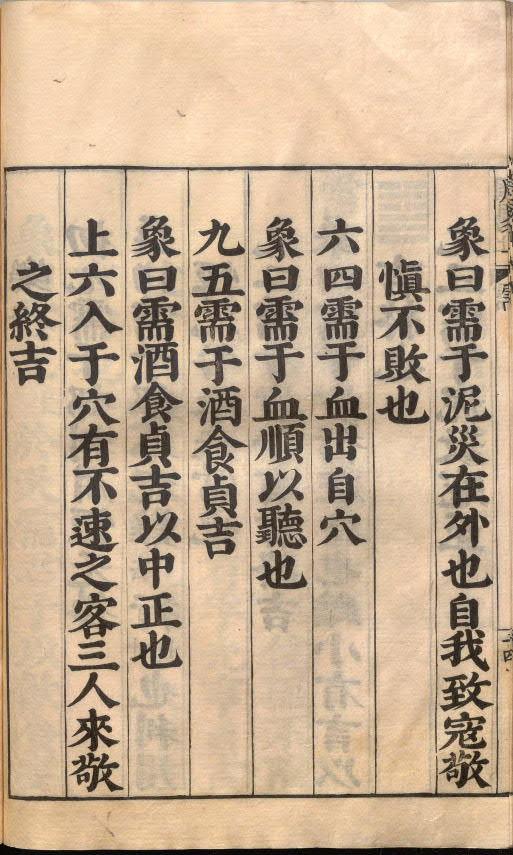 象曰需于泥災在外也自我致寇敬
慎不敗也
六四需于血出自穴
象曰需于血順以聽也
九五需于酒食貞吉
象曰需酒食貞吉以中正也
上六入于穴有不速之客三人來敬
之終吉